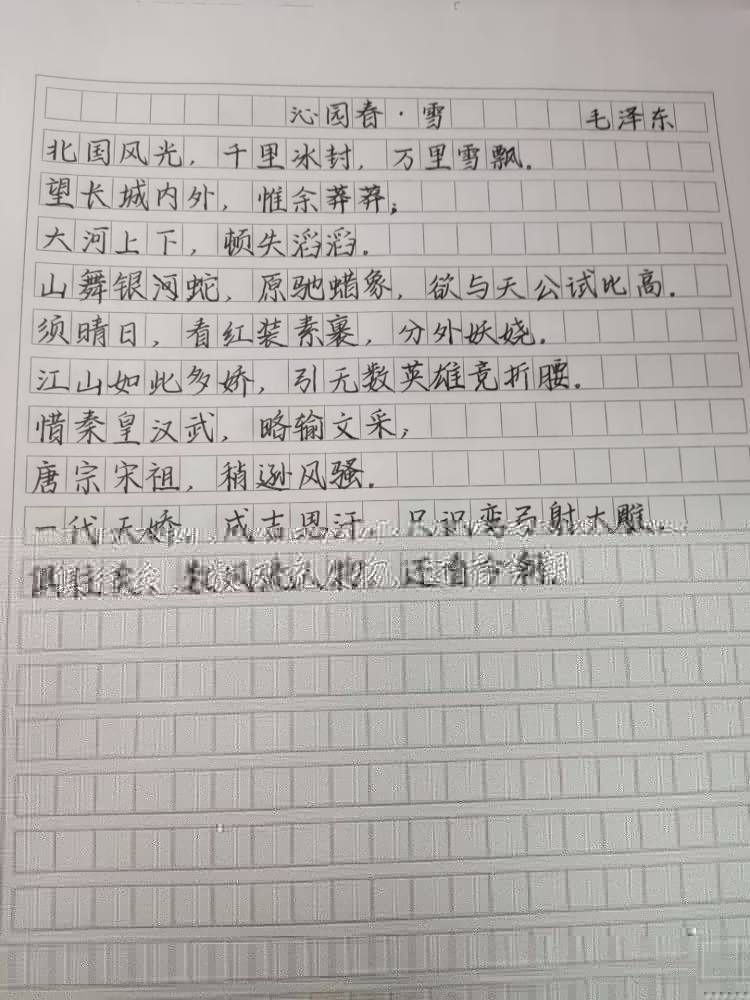 沁园春·雪 毛泽东
北国风光,千里冰封,万里雪飘.
望长城内外,惟余莽莽;
大河上下,顿失滔滔.
山舞银河蛇,原驰蜡象,欲与天公试比高.
须晴日,看红装素裹,分外妖娆.
江山如此多娇,引无数英雄竞折腰.
惜秦皇汉武,略输文采;
唐宗宋祖,稍逊风骚.
一代天娇,成吉思汗,只识弯弓射大雕.